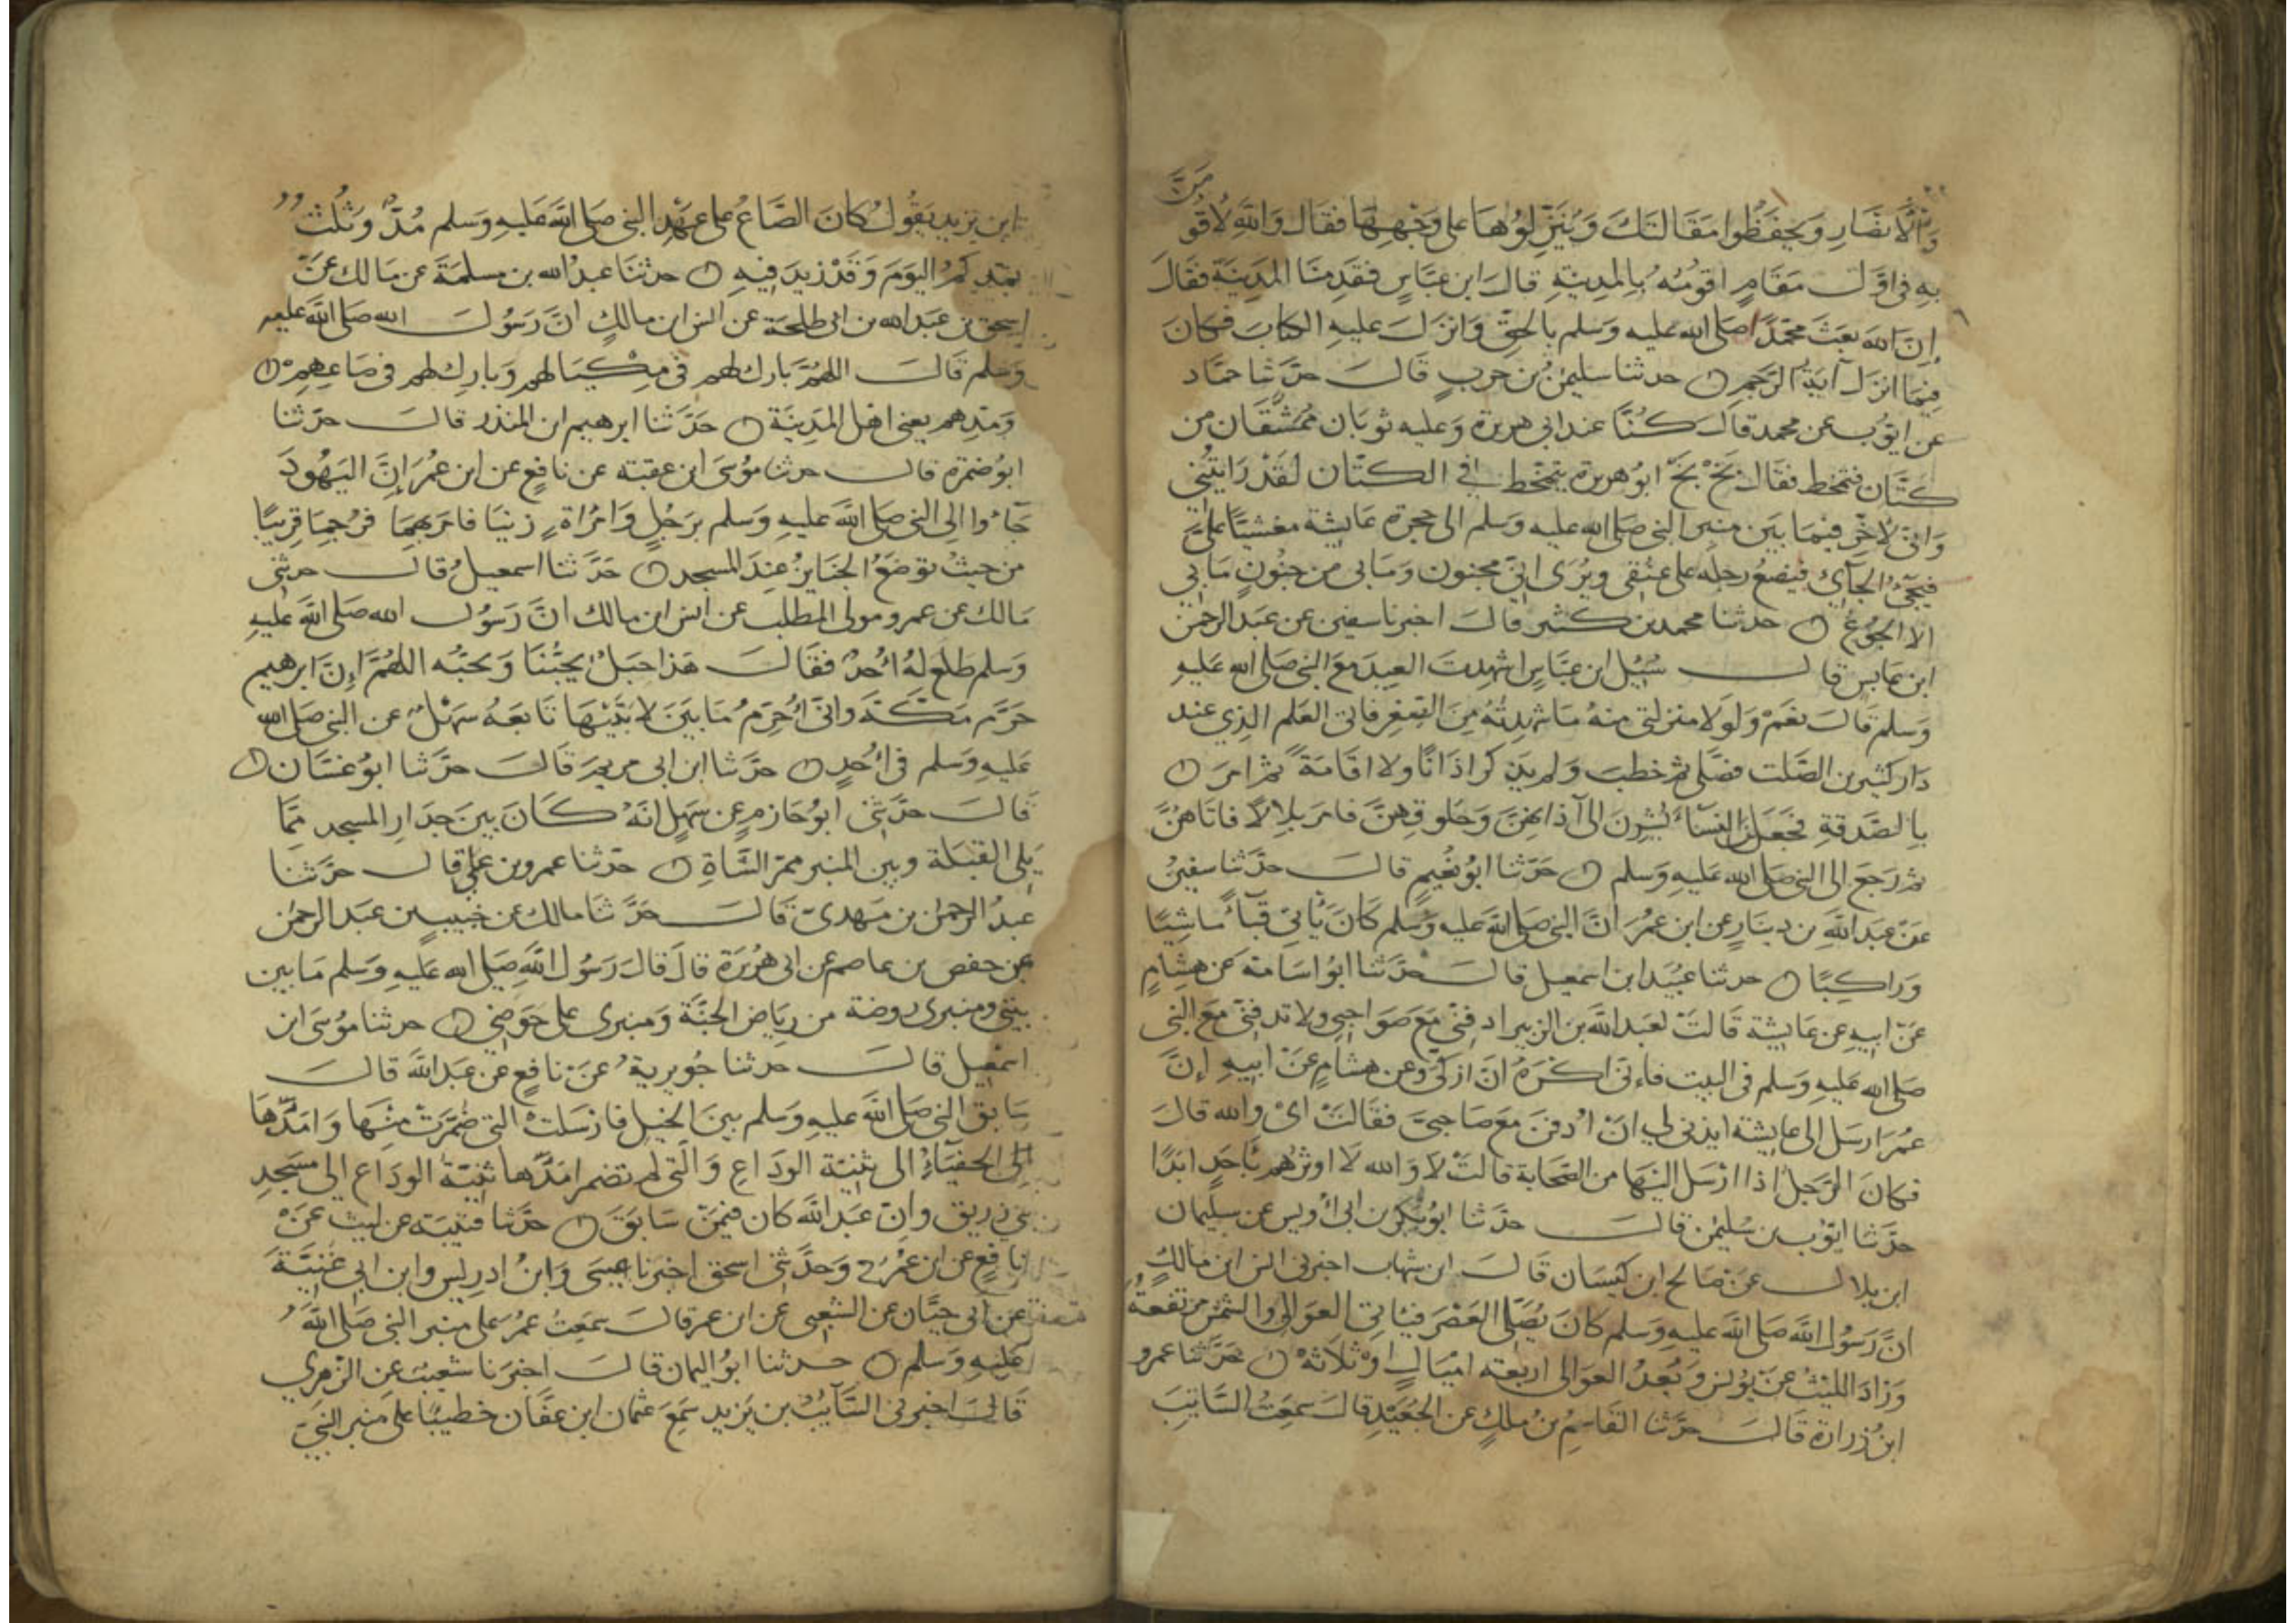 وَالْأَنصَارِ وَيحفَظُوا مَقَالَتَكَ وَيُنَزِّلُوُهَا عَلى وَجْهِهَا فقَالَ وَاللهِ لَأقُو
مَنَّ
بهِ فى اوَّل مَقَامٍ اقومُهُ بِالمدِينةِ قالَ ابن عبَّاسٍ فقَدِمنَا المَدِينَةَ فقَالَ
إنَّ الله بعَثَ محمّدًا صَلى الله عليه وَسَلم بالحقِّ وَانزَلَ عليهِ الكتابَ فكانَ
فِيمَا انزلَ آيَةُ الرَّجمِ حدثنا سليمٰنُ بن حربٍ قَالَ حدَّثنا حمَّاد
عن ايّوُب عن محمد قال كُنَّا عند ابى هريرة وَعليه ثوبَان ممُشَّقَان من
كتَّان فتمخط فقَال بَخْ بَخْ ابوُ هريرة يتمخط فى الكتَّان لقَدْ رَايتُنِى
وَانّى لَاخِرُّ فيمَا بيَن منبر النبى صَلى الله عليه وَسلم الى حجرة عَايشة مغشيًّا عليَّ
فيجِىُ الجَآئِ فيَضعُ رجلَهُ على عنُقى ويُرَى انِّى مجنون وَمَا بى من جنُونٍ مَا بى
الا الجوُع حدثنا محمد بن كثير قالَ اخبرنا سفين عن عبَد الرحمٰن
ابن عَابِسٍ قالَ سُئِلَ ابن عبَّاسٍ اشهِدتَ العِيدَ معَ النبى صَلى الله عَليهِ
وَسلم قَالَ نعَمْ وَلولَا منزلتى منهُ مَا شهِدتُهُ مِنَ الصِّغرِ فاتى العَلم الذِي عند
دَار كثير بن الصَّلت فصَلى ثم خطبَ وَلم يَذ كر اذَانًا ولا اقَامَةً ثم امَرَ
بالصَّدقةِ فجَعَلنَ النِسَآءُ يُشِرنَ الى آذانهِنَّ وَحَلوقهِنَّ فامَر بلالًا فاتَاهُنَّ
ثم رَجَعَ الى النبى صَلى الله عَليهِ وَسلم حَدّثنا ابوُ نعُيمٍ قالَ حدَّثنا سفينُ
عَنْ عبَد اللهِ بن دينَارٍ عن ابن عمُرَ انَّ النبى صَلى الله عليه وَسلم كَانَ يَأتى قبَآءً مَاشِيًا
وَراكِبًا حدثنا عبُيَد ابن اسمعيل قالَ حدَّثنا ابوُ اسَامَة عَن هِشامٍ
عَنْ ابيهِ عن عَايشة قَالَتْ لعَبد الله بن الزبير ادفنِّى مَعَ صَوَاحِبى ولا تدفنّى مَعَ النبى
صَلى الله عَليهِ وَسلم فى البيت فاءِنّى اكْرَهُ انْ ازكّى وعن هشامٍ عَنْ ابيهِ إنَّ
عُمَرَ ارسَل الى عايشة ايذنى لى انْ ادُفنَ معَ صَاحبىَّ فقَالتْ اىْ وَالله قالَ
فكانَ الرَّجلُ اذا ارْسَل اليهَا من الصَّحَابة قالتْ لا وَالله لَا اوثرُهم بأحَدٍ ابَدًا
حدَّثنا ايوُّب بن سُليمٰن قَالَ حدَّثنا ابوُ بَكر بن ابى اوُيس عن سليمان
ابن بلالٍ عن صَالح ابن كيسَان قَالَ ابن شهاب اخبرنى انس ابن مَالكٍ
انَّ رَسُول اللهَ صَلى الله عليهِ وَسلم كانَ يُصَلّى العَصْرَ فيَاتى العوَالى والشمسُ مرتفعَةٌ
وَزادَ الليْثُ عَنْ يوُنس وَبُعدُ العوَالى اربعَة اميَالٍ اوْ ثلَاثة حَدَّثنا عمرو
ابنُ زرارة قالَ حدَّثنا القاسِمُ بنُ ملكٍ عن الجُعَيْدِ قالَ سَمِعَتُ السَّائِبَ
ابن يزيد يَقُولُ كانَ الصَّاعُ على عَهْدِ النبى صَلى الله عَليهِ وَسلم مُدًّا وَثُلُثُ
بمُدِّكمُ اليَومَ وَقَدْ زيدَ فيهِ حدثنا عبدُ الله بن مسلَمَةَ عن مَالك عَنْ
اسحق بن عبَد الله بن ابى طلحَة عن انس ابن مالكٍ انَّ رَسُولَ الله صَلى الله عليه
وَسَلم قَالَ اللهُمَّ بَارك لهم فى مِكيَالهم وَبَاركِ لهم فى صَاعِهِمْ
وَمُدِّهم يعنى اهل المَدِينَة حَدَّثنا ابرهيم ابن المنذر قالَ حدّثنا
ابوُ ضمرَة قالَ حدثنا مُوسَى ابن عقبَة عن نافعٍ عن ابن عُمَرَ إنَّ اليَهُودَ
جَاءُوا الِى النبى صَلى الله عليهِ وَسلم برَجُلٍ وَامْرَاةٍ زنيَا فامَر بهِمَا فرُجِمَا قريبًا
من حيثُ توضَعُ الجنَايزُ عِندَ المسجد حَدَّثنا اسمعيلُ قالَ حدثنى
مَالك عن عمرو مولى المطلب عن انس ابن مالك انَّ رَسُول الله صَلى الله عليهِ
وَسلم طلعَ لهُ اُحُدٌ فقَالَ هَذا جَبَلٌ يحبُّنَا وَنحبُّه اللهُمَّ إنَّ ابرهيم
حَرَّم مَكّةَ وانّى اُحُرِّمُ مَا بيَن لابَتَيْهَا تَابعَهُ سَهْلٌ عن النبى صَلى الله
عَليهِ وَسلم فى اُحُدٍ حدَّثنا ابن ابى مريمَ قَالَ حدَّثنا ابوُ غسَّان
قَالَ حدَّثنِى ابوُ حَازمٍ عن سَهلٍ انهُ كَانَ بينَ جدَارِ المسجد ممَّا
يَلى القبَلة وبين المنبر ممرّ الشَّاةِ حدّثنا عمرو بن علىٍّ قالَ حدَّثنا
عبدُ الرحمٰن بن مَهدىّ قَالَ حدَّثنا مالك عن خُبيبِ بن عَبَد الرحمٰن
عن حفص بن عاصم عن ابى هُريرَة قالَ قالَ رَسُول اللهَ صَلى الله عَليهِ وَسَلم مَا بين
بيتى ومنبرى روضة من رِيَاض الجنَّة وَمنبرى على حَوضِى حدثنا موُسَى ابن
اسمعِيل قالَ حدثنا جُويرية عَنْ نافعٍ عن عَبد الله قالَ
سَابقَ النبى صَلى الله عليهِ وَسلم بينَ الخَيل فارسَلتْ التى ضُمِّرَتْ مِنْهَا وَامَدُّهَا
الِى الحَفيَآءِ الى ثنيَّة الودَاعِ وَالَّتى لم تضمر امَدُّها ثنيَّة الودَاع الى مسَجدِ
بنى زريق وانّ عَبدَ الله كان فيمَنْ سَابَقَ حدَّثنا قتيبَة عن ليث عَنْ
نافعٍ عن ابن عمُرَ ح وَحدَّثنى اسحق اخبَرنا عيسَى وَابنُ ادرِيس وابن ابى غَنيَّةَ
عن ابى حيَّان عن الشعبى عن ابن عمر قالَ سَمِعتُ عمُرَ عَلى منبر النبى صَلى الله
عَليهِ وَسَلم حدثنا ابوُ اليمان قالَ اخبَرَنا شعَيبٌ عن الزهرى
قَالَ اخبرنى السَّآئِبُ بن يَزيد سَمِعَ عثمان ابن عفَّان خطيبًا عَلى منبر النبىّ